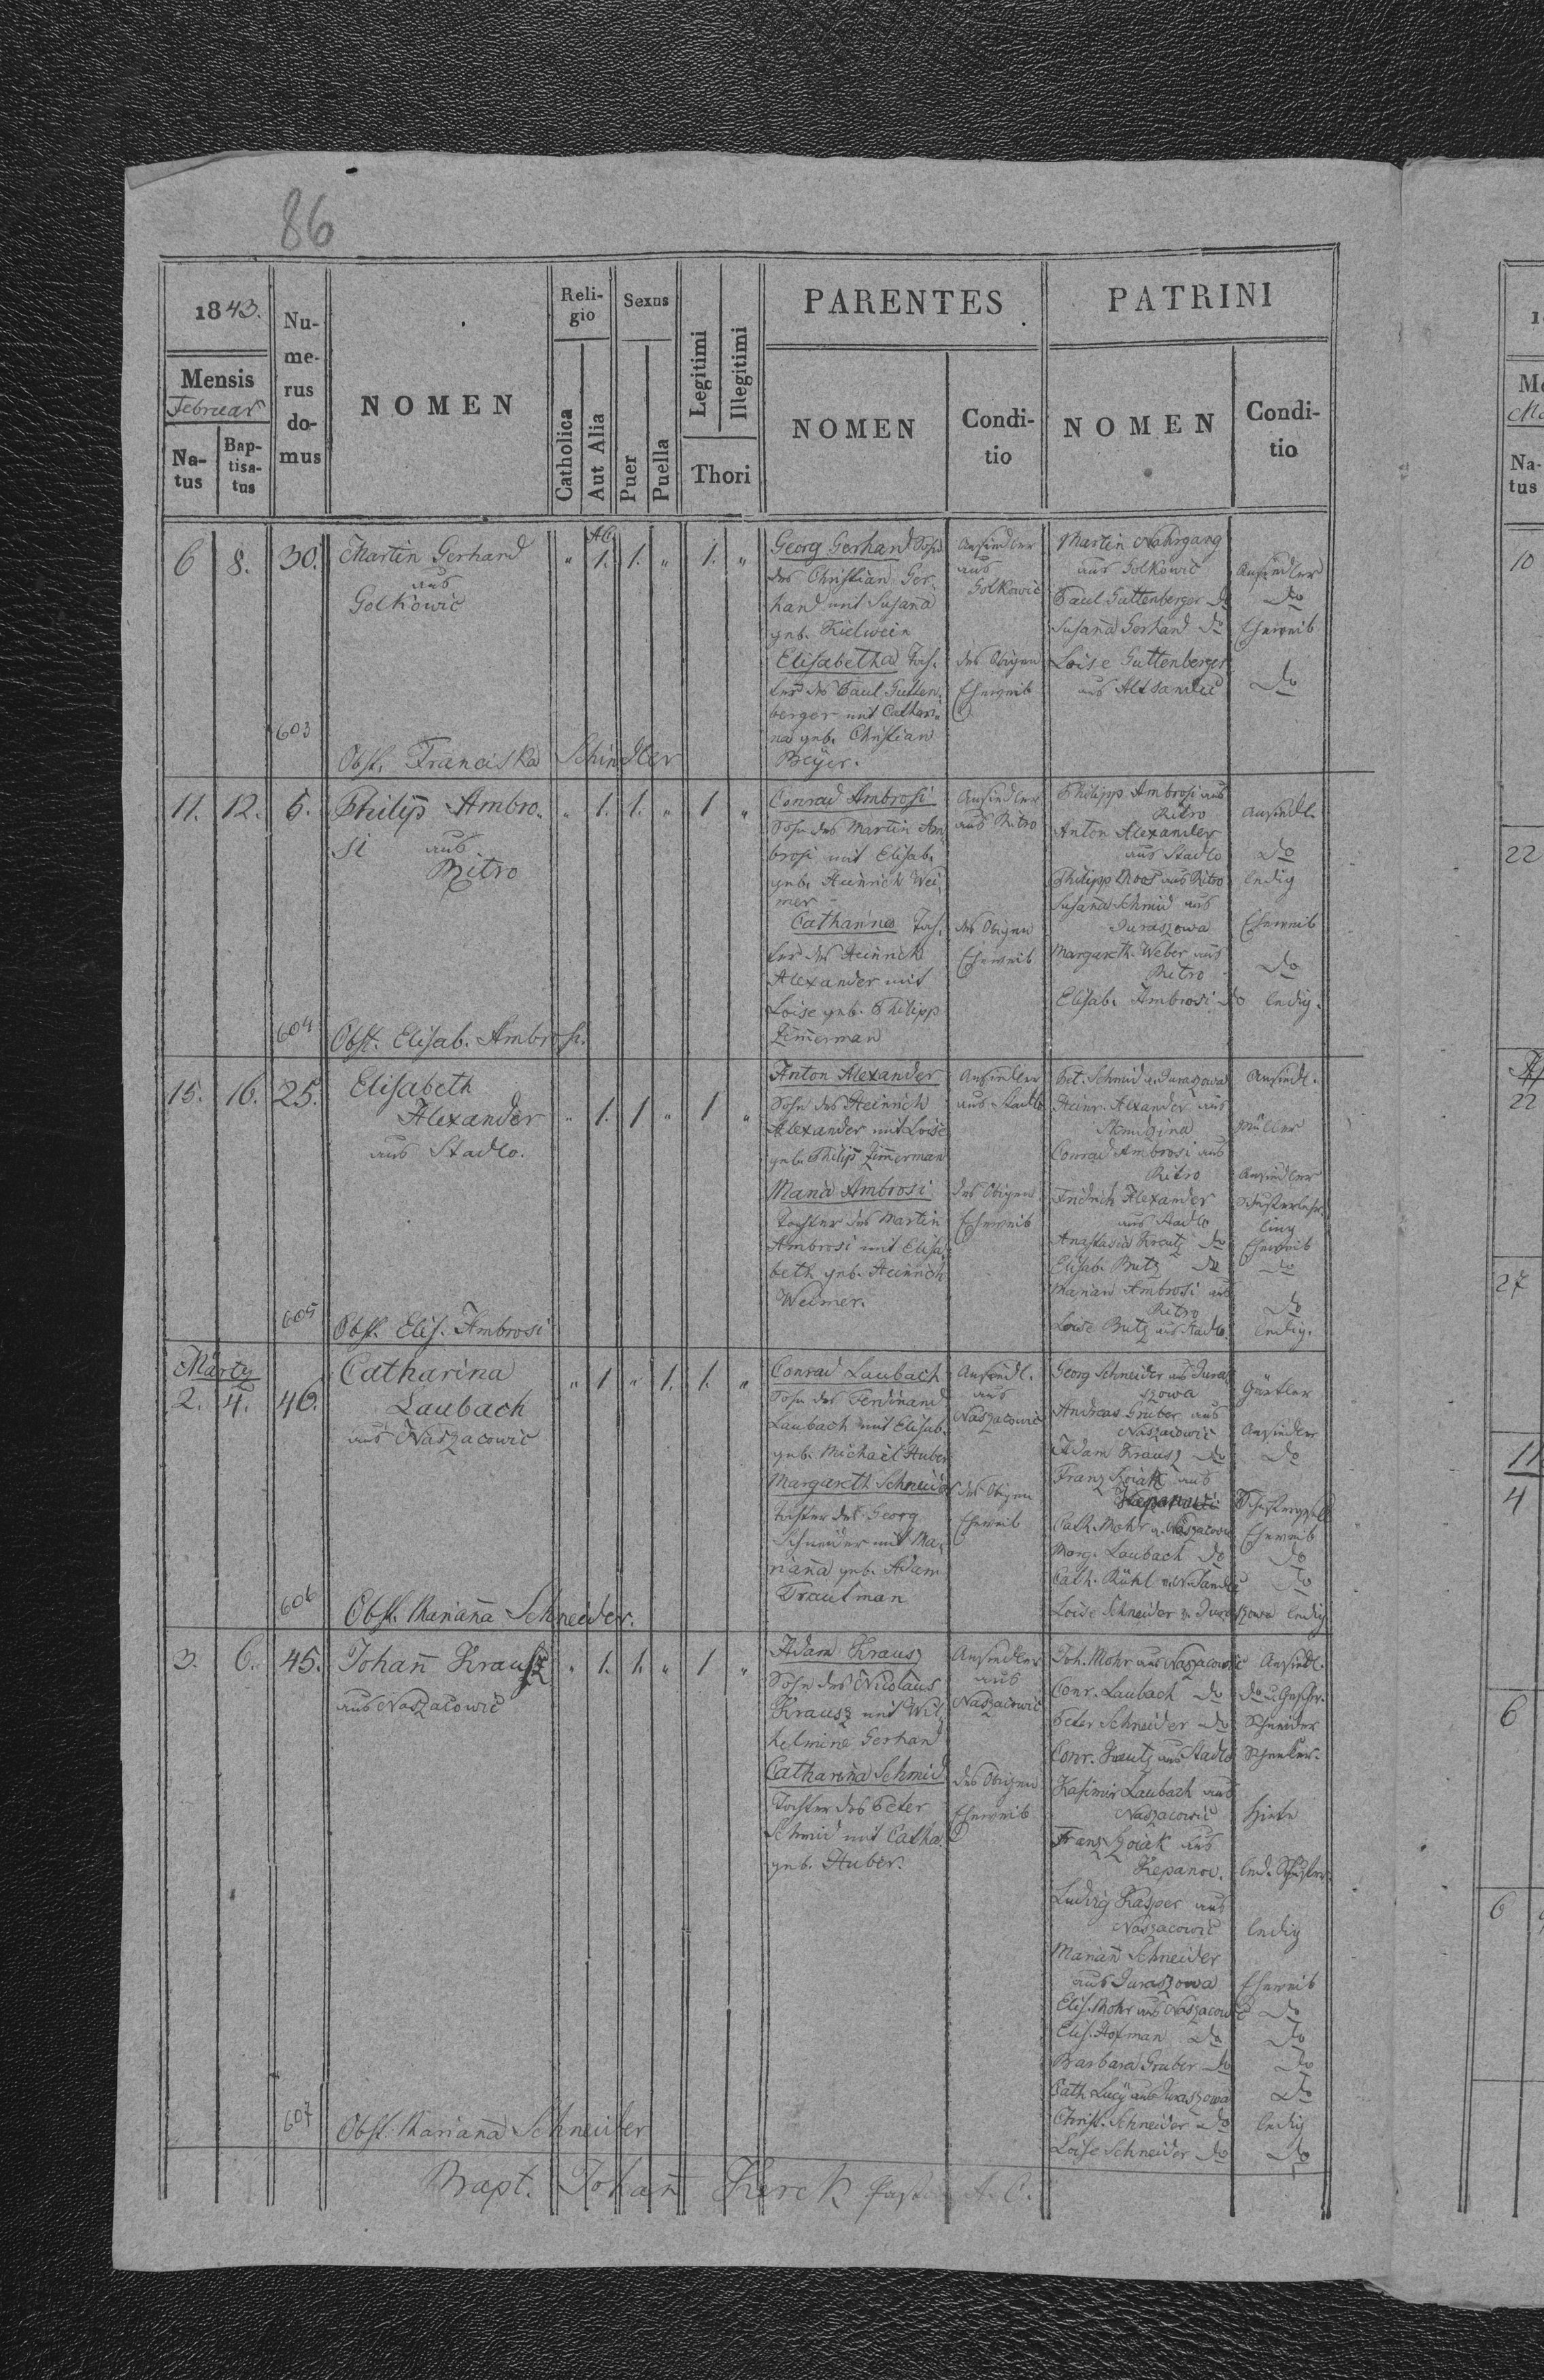 86
1843.
Mensis
Februar
Na-
tus
Bap-
tisa-
tus
Nu-
me-
rus
do-
mus
NOMEN
Reli-
gio
Catholica
Aut Alia
Sexus
Puer
Puella
Legitimi
Illegitimi
Thori
PARENTES
NOMEN
Condi-
tio
PATRINI
NOMEN
Condi-
tio
6 8. 30.
Martin Gerhard
aus
Golkowic
" A.C. 1. 1. " 1. "
Georg Gerhard Sohn
des Christian Ger-
hard mit Susana
geb. Kielwein
Elisabetha Toch-
ter des Paul Gutten-
berger mit Cathari-
na geb. Christian
Beyer.
Ansiedler
aus
Golkowic
des Obigen
Eheweib
Martin Nahrgang
aus Golkowic
Paul Guttenberger do
Susana Gerhard do
Loise Guttenberger
aus Altsandec
Ansiedler
do
Eheweib
do
603
Obst. Franciska Schindler
11. 12. 5.
Philip Ambro-
si aus
Ritro
" 1. 1. " 1 "
Conrad Ambrosi
Sohn des Martin Am-
brosi mit Elisab.
geb. Heinrich Wei-
mer
Catharina Toch-
ter des Heinrich
Alexander mit
Loise geb. Philipp
Zimerman
Ansiedler
aus Ritro
des Obigen
Eheweib
Philipp Ambrosi aus
Ritro
Anton Alexander
aus Stadlo
Philipp Moos aus Ritro
Susana Schmid aus
Juraszowa
Margareth Weber aus
Ritro
Elisab. Ambrosi do
Ansiedl.
do
ledig
Eheweib
do
ledig.
604
Obst. Elisab. Ambrosi.
15. 16. 25.
Elisabeth
Alexander
aus Stadlo.
" 1. 1 " 1 "
Anton Alexander
Sohn des Heinrich
Alexander mit Loise
geb. Philip Zimerman
Maria Ambrosi
Tochter des Martin
Ambrosi mit Elisa-
beth geb. Heinrich
Weimer.
Ansiedler
aus Stadlo
des Obigen
Eheweib
Pet. Schmid a. Juraszowa
Heinr. Alexander aus
Conrad Ambrosi aus
Ritro
Fridrich Alexander
aus Stadlo
Anastasia Kreutz do
Elisab. Butz do
Marian Ambrosi aus
Ritro
Loise Butz aus Stadlo
Ansiedl.
Müller
Ansiedler
Schusterlehr-
ling
Eheweib
do
do
ledig.
605
Obst. Elis. Ambrosi
Märtz
2. 4. 46.
Catharina
Laubach
aus Naszacowic
" 1 " 1. 1. "
Conrad Laubach
Sohn des Ferdinand
Laubach mit Elisab.
geb. Michael Huber
Margareth Schneider
Tochter des Georg
Schneider mit Ma-
riana geb. Adam
Trautman
Ansiedl.
aus
Naszacowic
des Obigen
Eheweib
Georg Schneider aus Jura-
szowa
Andreas Gruber aus
Naszacowic
Adam Krausz do
Franz Koiak aus
Cath. Mohr a. Naszacowic
Marg. Laubach do
Cath. Rühl
Loise Schneider v. Juraszowa
Gärtler
Ansiedler
do
Eheweib
do
do
ledig
606
Obst. Mariana Schneider.
3. 6. 45.
Johann Krausz
aus Naszacowic
" 1. 1. " 1 "
Adam Krausz
Sohn des Nicolaus
Krausz mit Wil-
helmine Gerhard
Catharina Schmid
Tochter des Peter
Schmid mit Catha.
geb. Huber.
Ansiedler
aus
Naszacowic
des Obigen
Eheweib
Joh. Mohr aus Naszacowic
Conr. Laubach do
Peter Schneider do
Conr. Kreutz aus Stadlo
Kasimir Laubach aus
Naszacowic
Franz Koiak aus
Ludwig Kasper aus
Naszacowic
Marian Schneider
aus Juraszowa
Elis. Mohr aus Naszacowic
Elis. Hofman do
Barbara Gruber do
Cath. Lucy aus Juraszowa
Christ. Schneider do
Loise Schneider do
Ansiedl.
Schneider
ledig
Eheweib
do
do
do
do
ledig
do
607
Obst. Mariana Schneider
Bapt. Johan Zerck Pastor A.C.
10
22
22
27
11
4
6
6